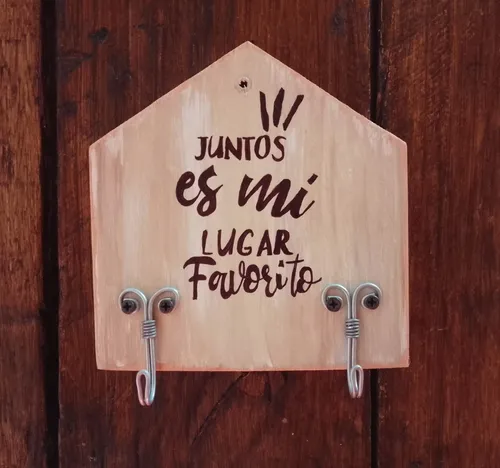 JUNTOS
es mi
LUGAR
Favorito